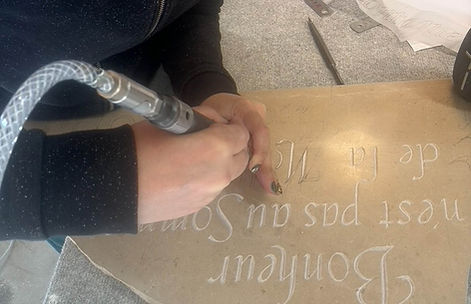 Bonheur
n'est pas au Somm
de la